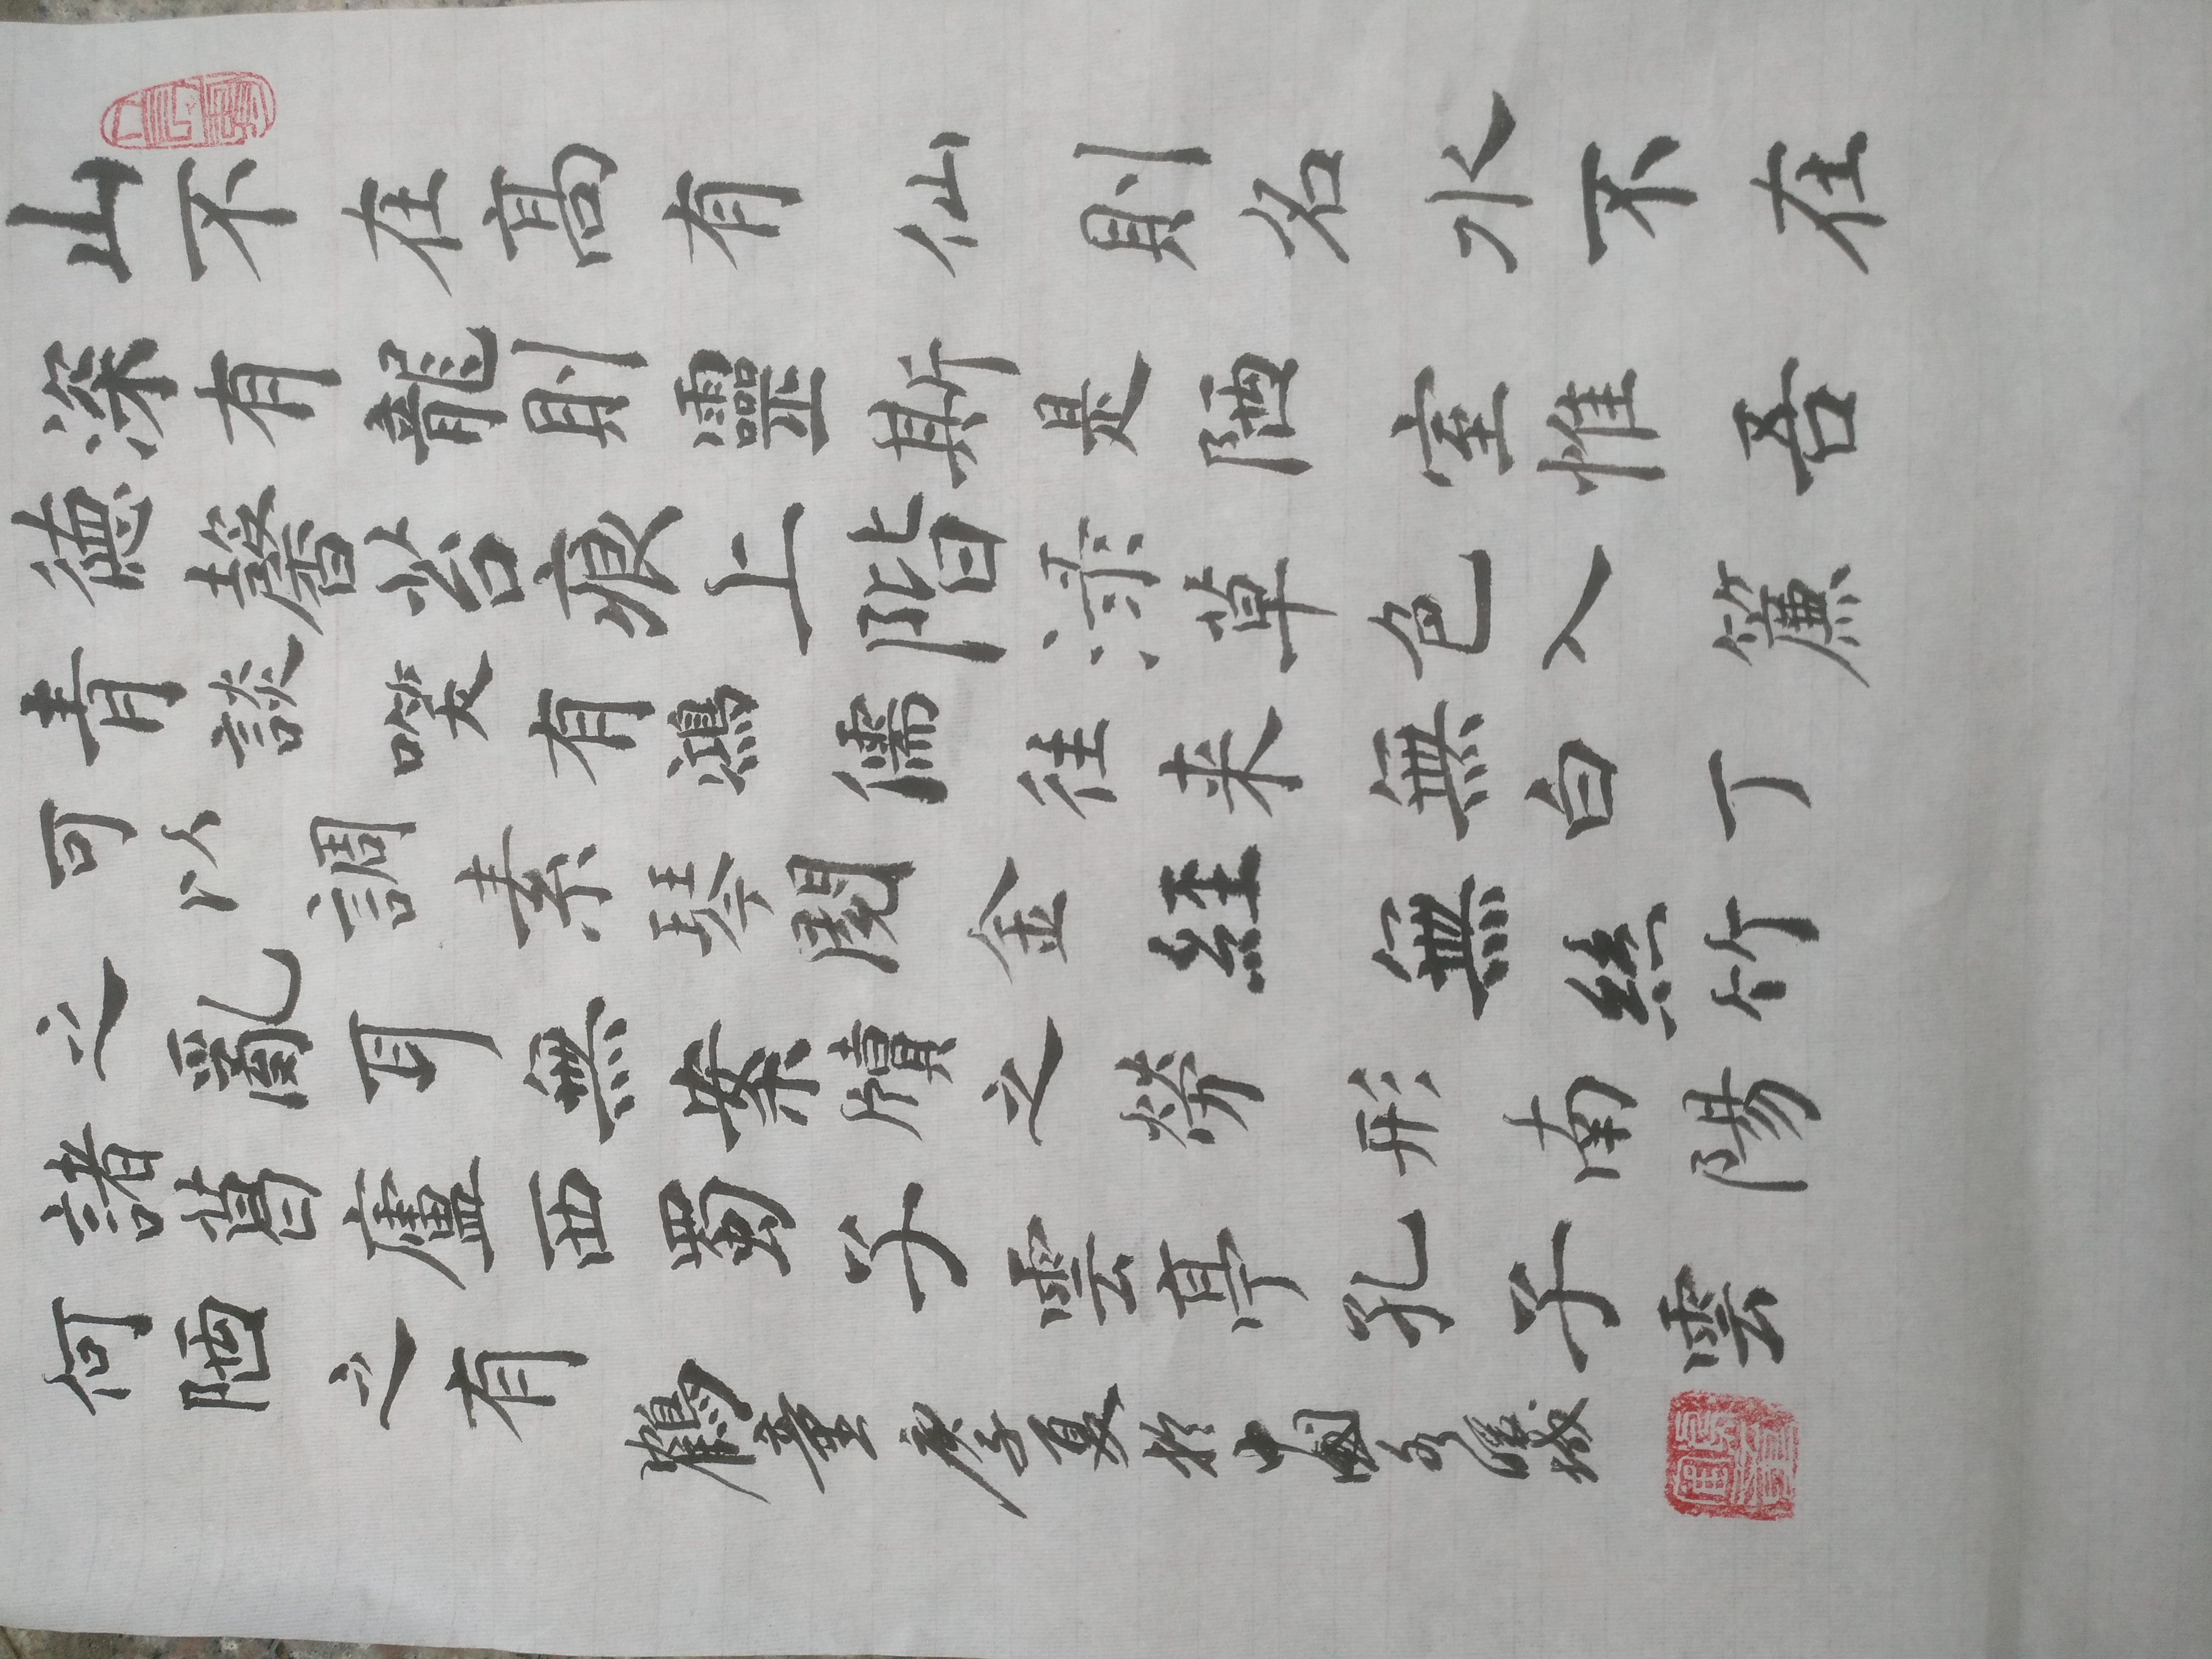 山不在髙有仙則名水不在
深有龍則靈斯是陋室惟吾
德馨苔痕上階草色入簾
青談笑有鴻儒往来無白丁
可以調素琴閱金経無絲竹
之亂耳無案牘之勞形南陽
諸葛廬西蜀子雲亭孔子雲
何陋之有
鶴童庚子夏於中國城